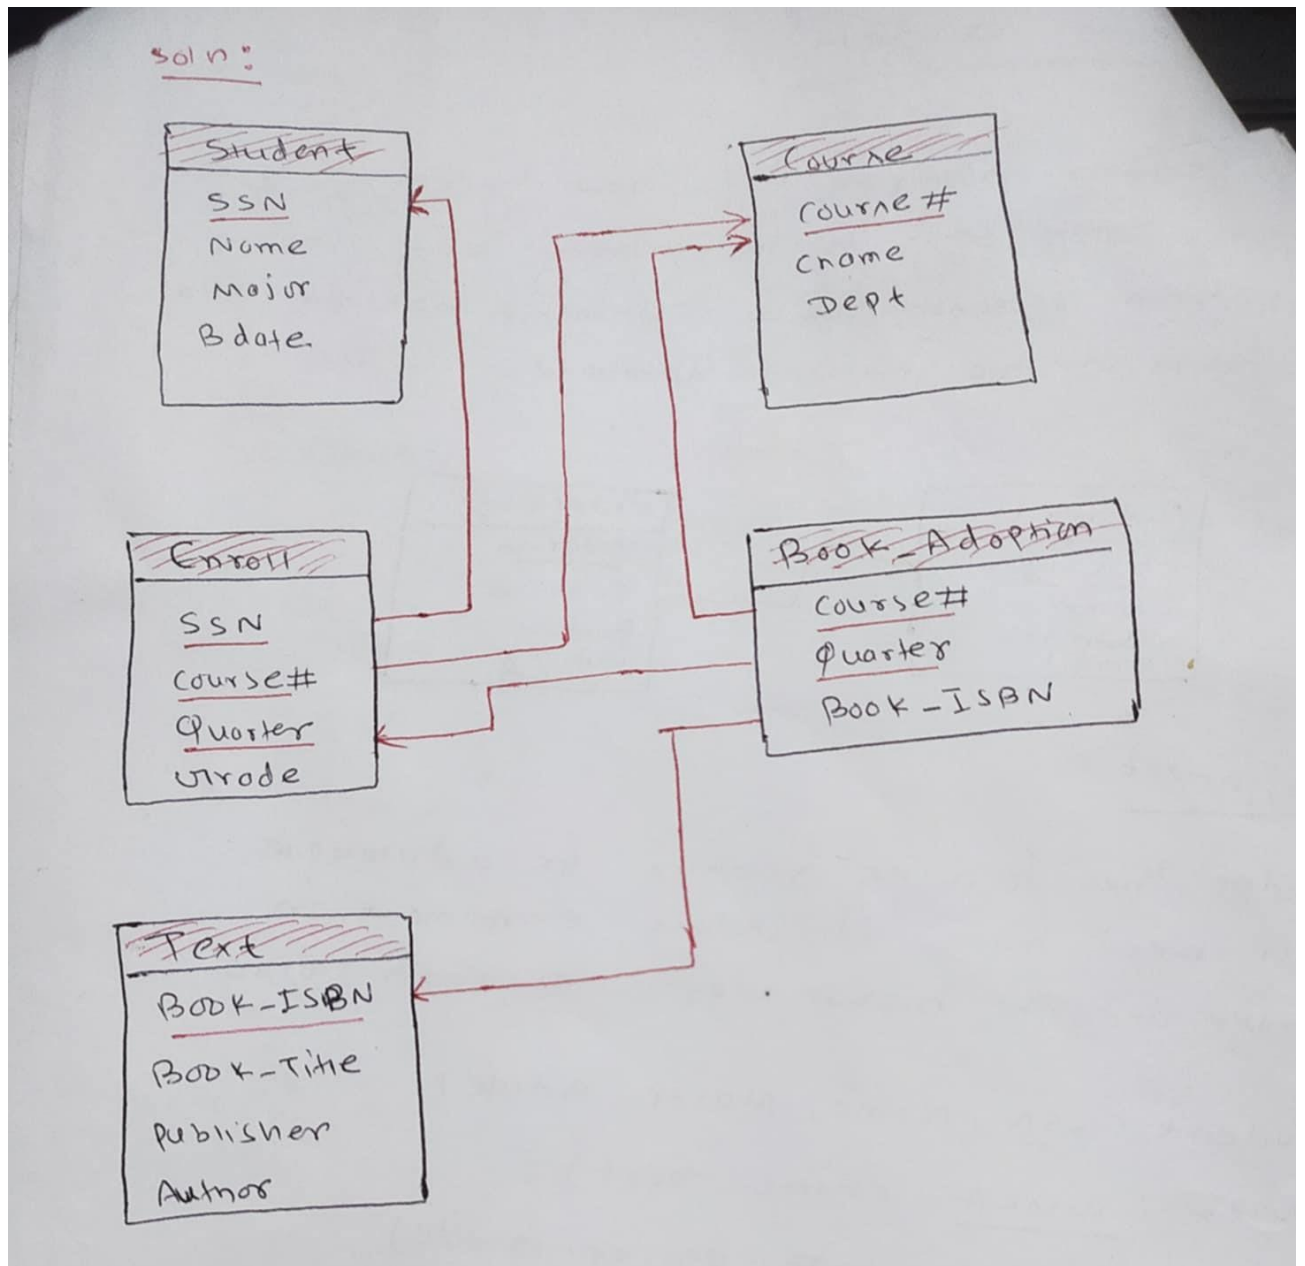 Soln:
Student
SSN
Name
Major
Bdate
Course
Course#
Cname
Dept
Enroll
SSN
Course#
Quarter
Grade
Book_Adoption
Course#
Quarter
Book_ISBN
Text
Book_ISBN
Book_Title
Publisher
Author